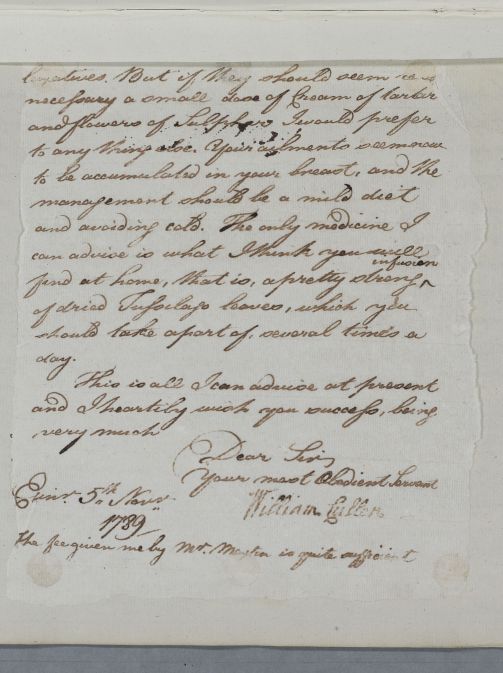 laxatives. But if they should seem
necessary a small dose of Cream of tartar
and flowers of Sulphur I would prefer
to any thing else. Your ailments seem now
to be accumulated in your breast, and the
management should be a mild diet
and avoiding cold. The only medicine I
can advise is what I think you will
find at home, that is, a pretty strong infusion
of dried Tussilago leaves, which you
should take a part of, several times a
day.
This is all I can advise at present
and I heartily wish you success, being
very much
Dear Sir
Your most Obedient Servant
William Cullen
Edinr. 5th Novr.
1789
The fee given me by Mr. is quite sufficient